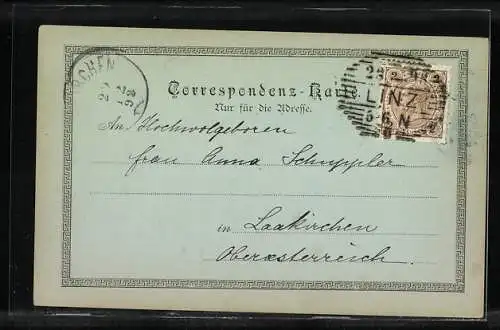 Correspondenz-Karte.
Nur für die Adresse.
LINZ
5-6 N
2 2
An Hochwolgeboren
Frau Anna Schuppler
in Laakirchen
Oberœsterreich.